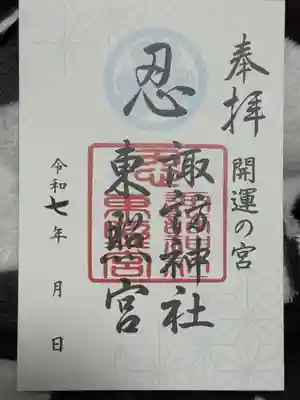 奉拝
開運の宮
忍
諏訪神社
東照宮
令和七年 月 日